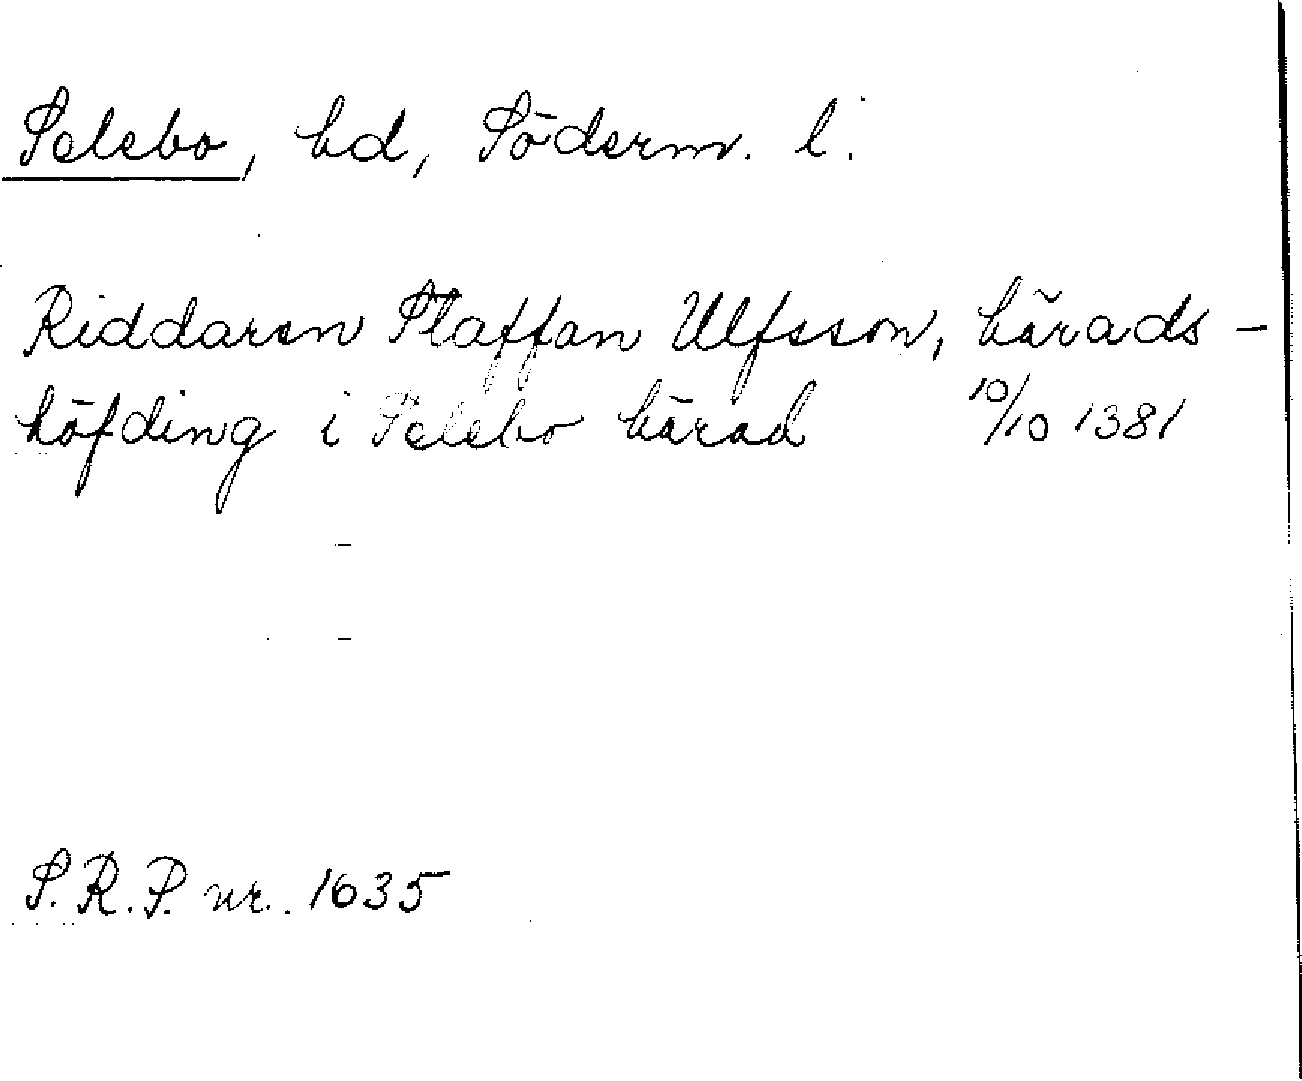 Selebo, hd, Söderm. l.
Riddaren Staffan Ulfsson, härads-
höfding i Selebo härad 10/10 1381
S.R.P. nr. 1635